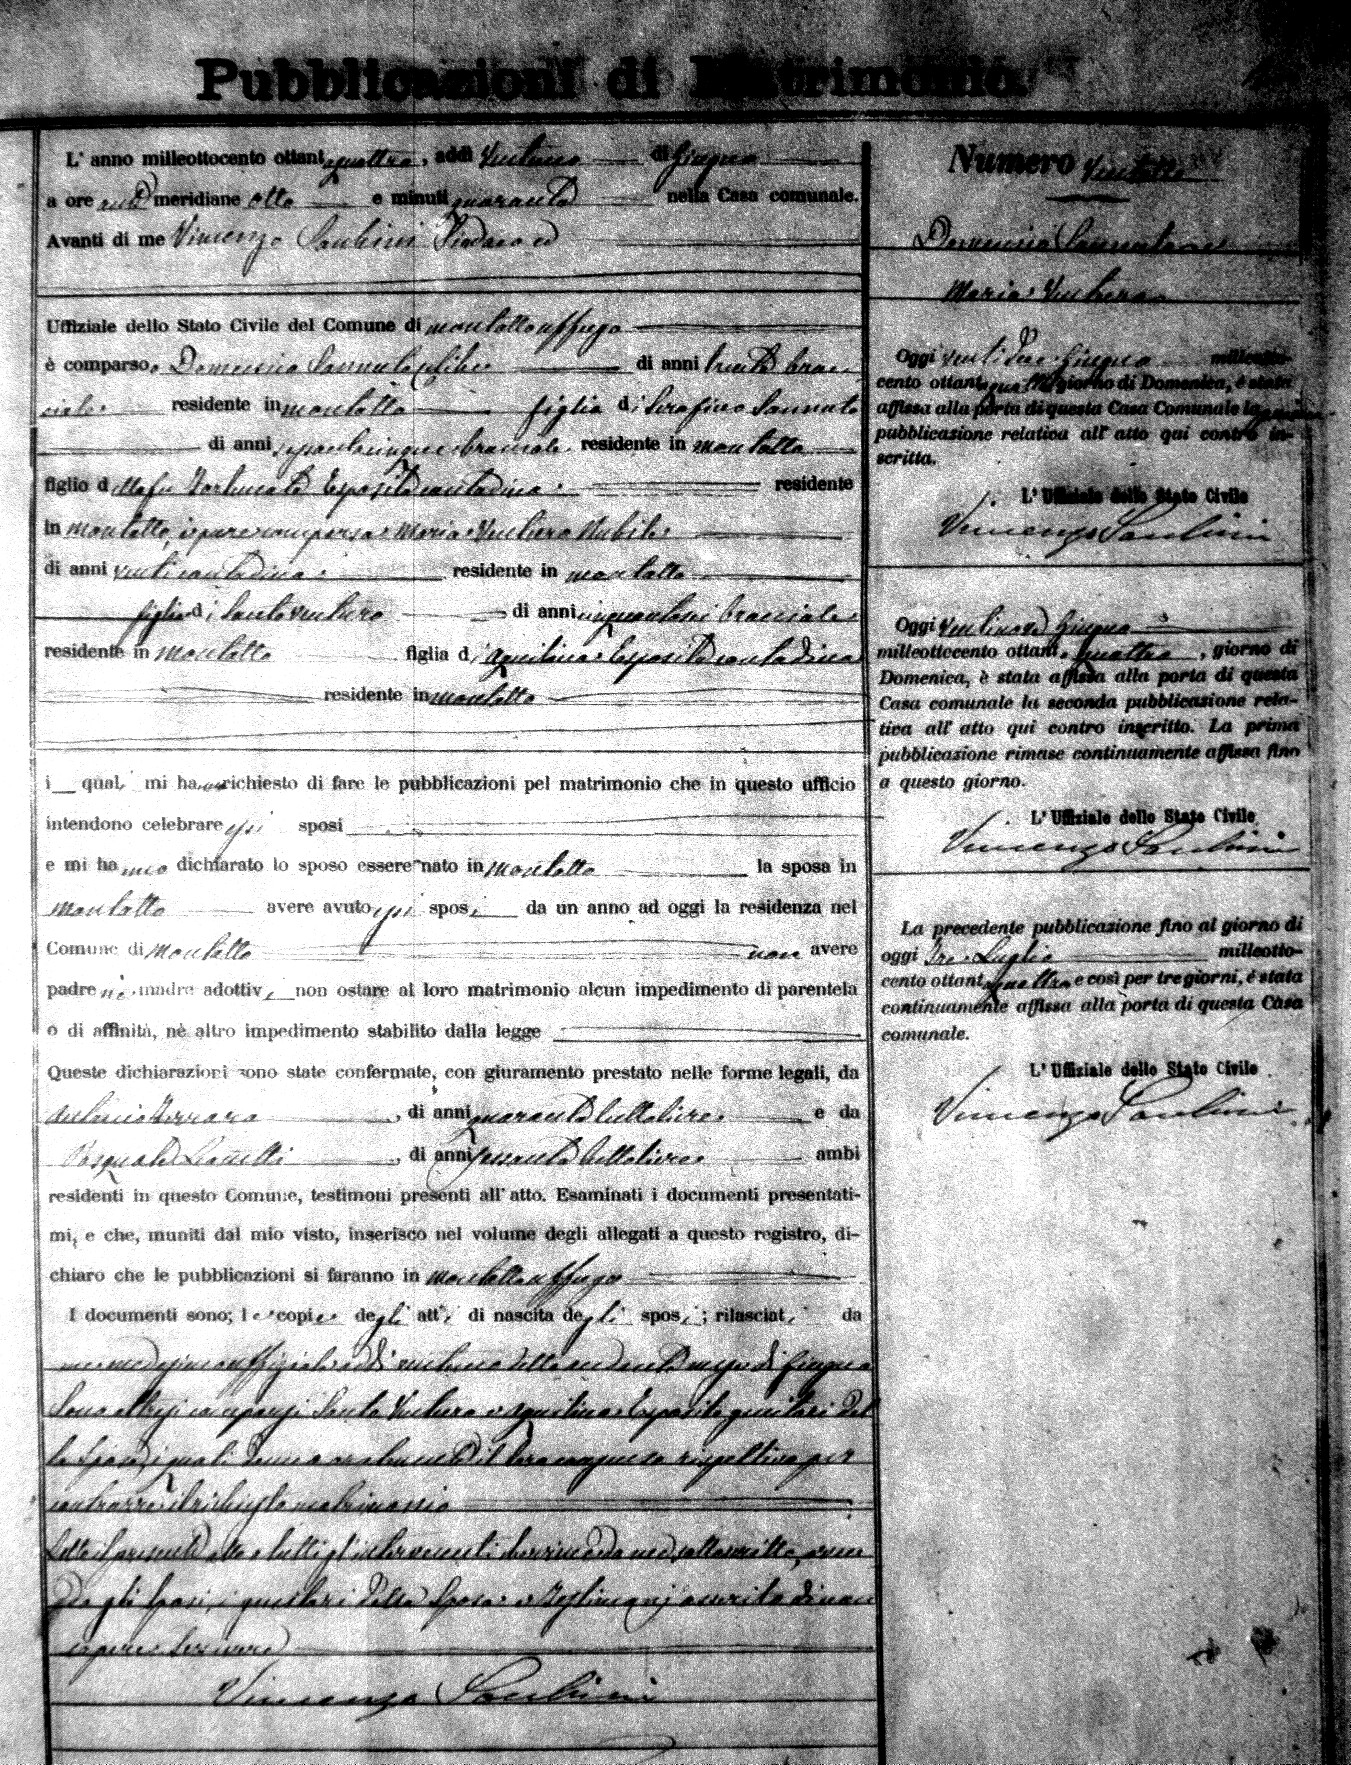 Pubblicazioni di Matrimonio.
L' anno milleottocento ottantaquattro, addì Ventuno di Giugno
a ore anti meridiane otto e minuti quaranta nella Casa comunale.
Avanti di me Vincenzo Sindaco ed
Uffiziale dello Stato Civile del Comune di Montalto Uffugo
è comparso Domenico Sannuto celibe di anni trenta brac
ciale residente in Montalto figlio di Serafino Sannuto
di anni sessantacinque bracciale residente in Montalto
figlio della fu Fortunata Esposito contadina residente
in Montalto, è pure comparsa Maria Ventura Nubile
di anni venti contadina residente in Montalto
figlia di Santo Ventura di anni cinquantasei bracciale
residente in Montalto figlia di Aquilina Esposito contadina
residente in Montalto
i quali mi hanno richiesto di fare le pubblicazioni pel matrimonio che in questo ufficio
intendono celebrare essi sposi
e mi hanno dichiarato lo sposo essere nato in Montalto la sposa in
Montalto avere avuto essi sposi da un anno ad oggi la residenza nel
Comune di Montalto non avere
padre nè madre adottivi, non ostare al loro matrimonio alcun impedimento di parentela
o di affinità, nè altro impedimento stabilito dalla legge
Queste dichiarazioni sono state confermate, con giuramento prestato nelle forme legali, da
Antonio Ferrara, di anni quaranta e da
Pasquale, di anni sessanta ambi
residenti in questo Comune, testimoni presenti all' atto. Esaminati i documenti presentati-
mi, e che, muniti dal mio visto, inserisco nel volume degli allegati a questo registro, di-
chiaro che le pubblicazioni si faranno in Montalto Uffugo
I documenti sono; le copie degli atti di nascita degli sposi; rilasciati da
me medesimo uffiziale addì ventuno dello andante mese di Giugno
Sono altresì comparsi Santo Ventura e Aquilina Esposito genitori del
la sposa, i quali danno il loro consenso rispettivo per
contrarre il richiesto matrimonio
Letto il presente atto a tutti gl'intervenuti da me sottoscritto, aven
do gli sposi, i genitori della sposa e testimonj asserito di non
sapere scrivere
Vincenzo
Numero Ventotto
Domenico Sannuto e
Maria Ventura
Oggi venti due Giugno milleotto-
cento ottantaquattro giorno di Domenica, è stata
affissa alla porta di questa Casa Comunale la prima
pubblicazione relativa all' atto qui contro in-
scritta.
L' Uffiziale dello Stato Civile
Vincenzo
Oggi ventinove Giugno
milleottocento ottantaquattro, giorno di
Domenica, è stata affissa alla porta di questa
Casa comunale la seconda pubblicazione rela-
tiva all' atto qui contro inscritto. La prima
pubblicazione rimase continuamente affissa fino
a questo giorno.
L' Uffiziale dello Stato Civile
Vincenzo
La precedente pubblicazione fino al giorno di
oggi Tre Luglio milleotto-
cento ottantaquattro e così per tre giorni, è stata
continuamente affissa alla porta di questa Casa
comunale.
L' Uffiziale dello Stato Civile
Vincenzo